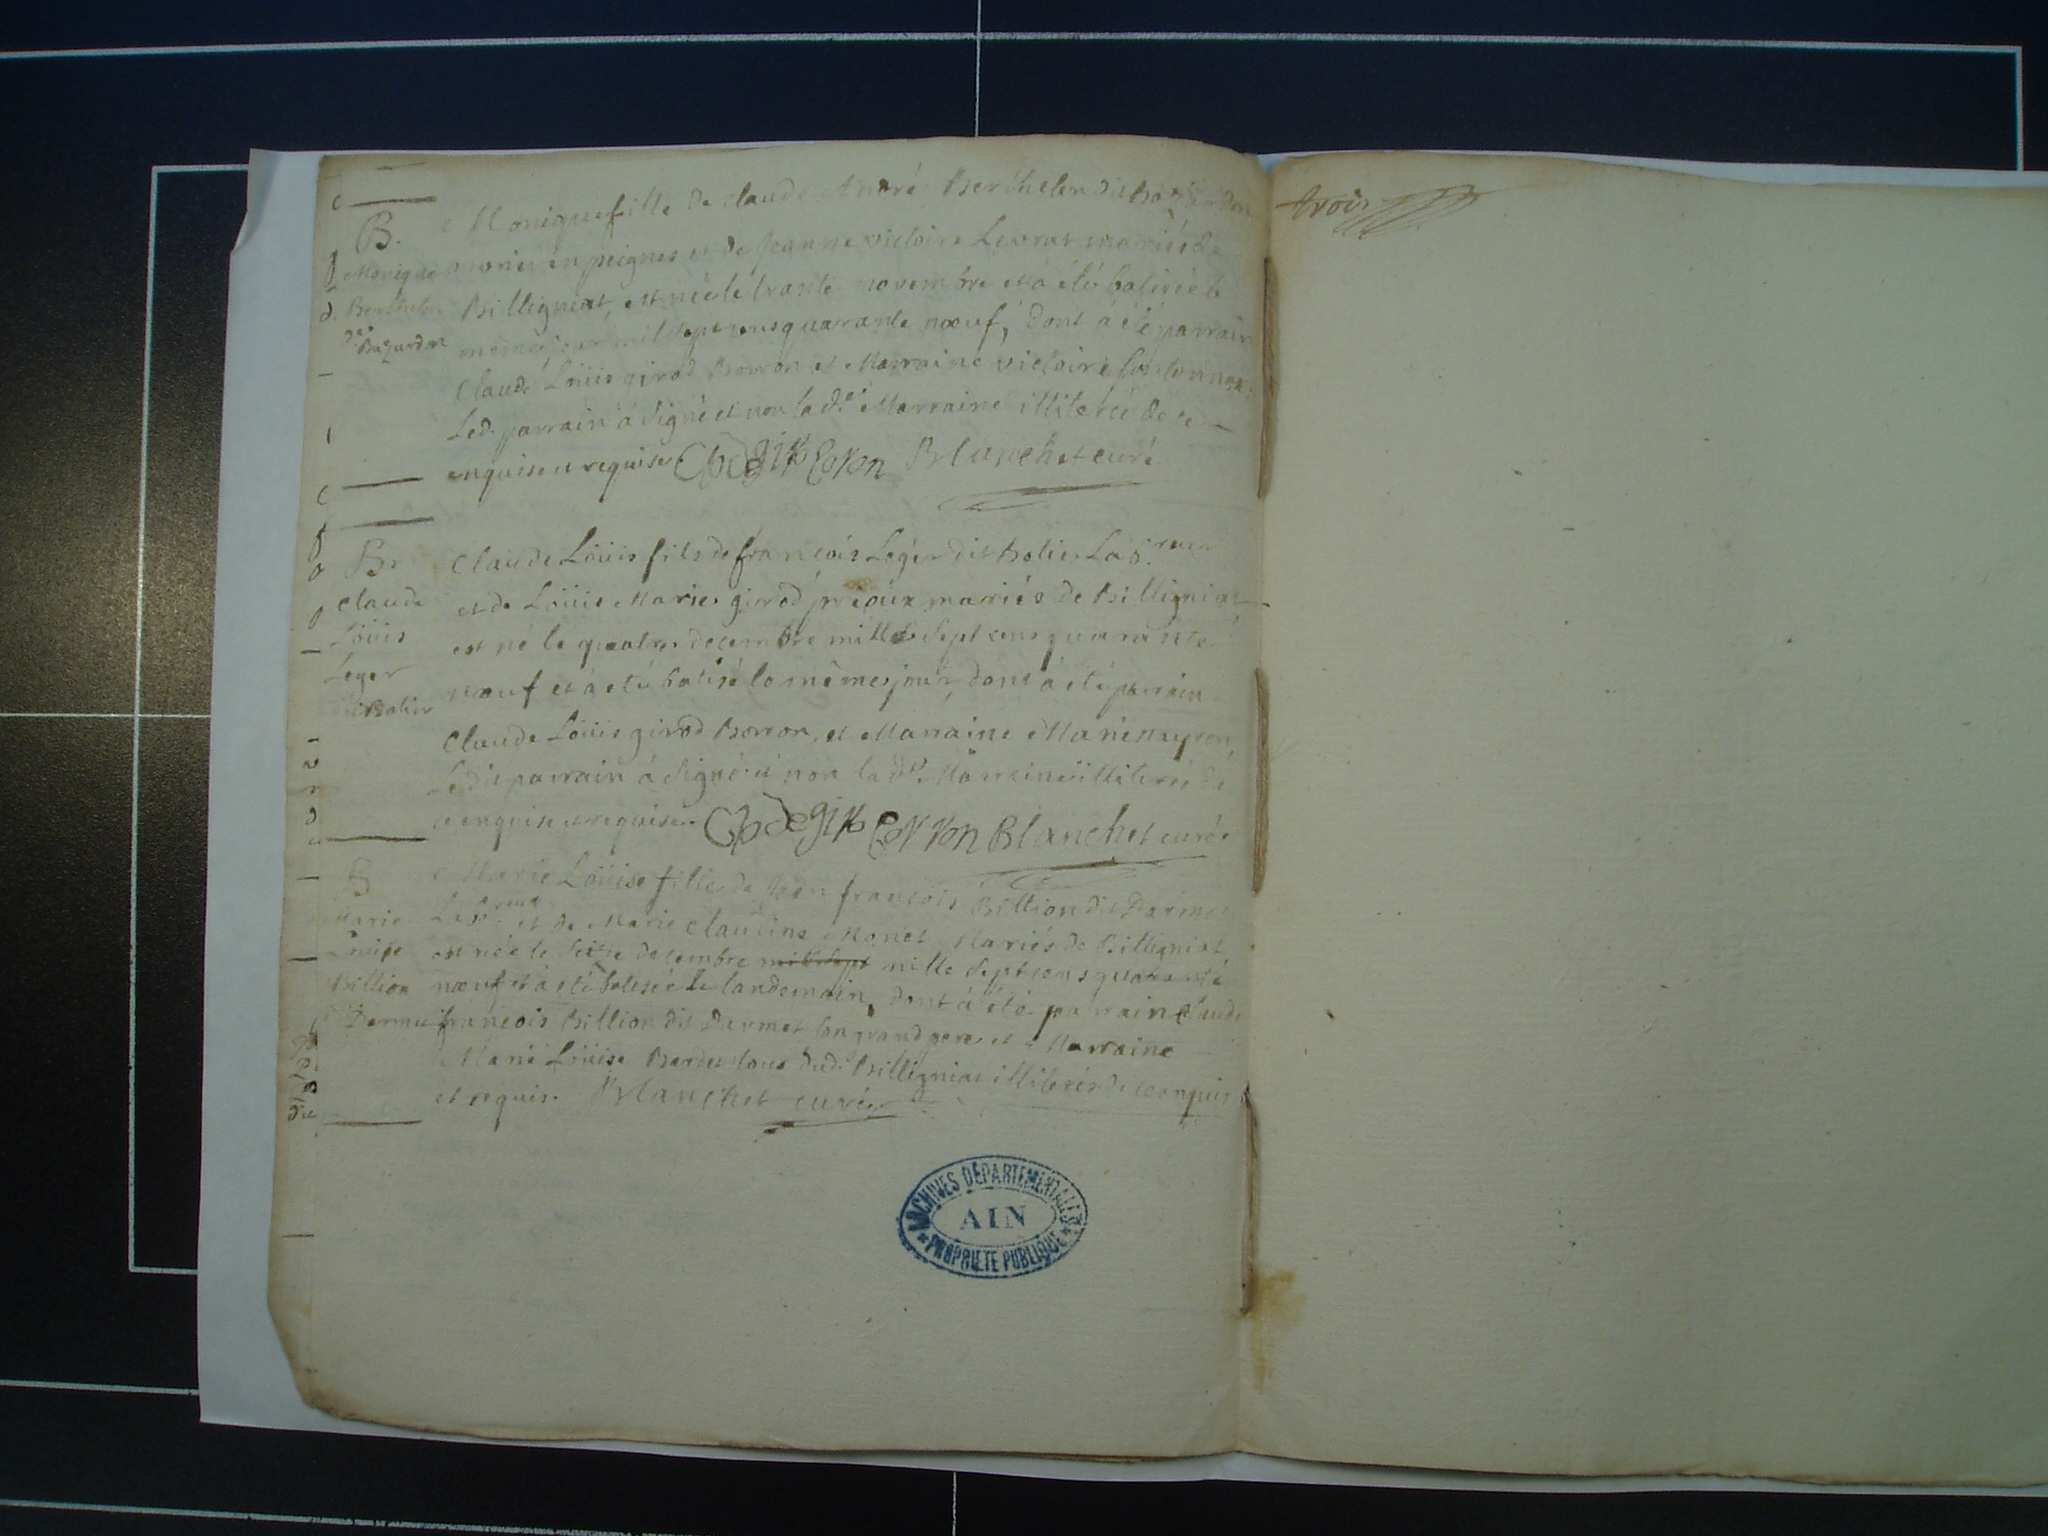 B.
Monique
Berthelon
Monique fille de claude André Berthelon dit
en peignes et de Jeanne victoire Levrat mariés de
Billigniat, est née le trante novembre et a été batisée le
même jour mil sept cens quarante nœuf, dont á été parrain
Claude Loüis girod Borron et Marraine victoire
Led. parrain á signé et non la d.e Marraine illiterée de ce
enquise et requise. Blanchet curé
B.
Claude
Loüis
Leger
dit Bolier
Claude Loüis fils de françois Leger dit Bolier
et de Loüise Marie girod mariés de Billigniat
est né le quatre decembre mille sept cens quarante
nœuf et á été batisé le même jour, dont á été parrain
Claude Loüis girod Borron, et Marraine Marie
Ledit parrain á signé et non la d.e Marraine illiterée de
ce enquise et requise. Blanchet curé
B
Marie
Loüise
Billion
Darmet
Marie Loüise fille de Jean françois Billion dit Darmet
et de Marie claudine Monet Mariés de Billigniat,
est née le decembre mil sept mille sept cens quarante
nœuf et á été batisée le landemain, dont á été parrain Claude
françois Billion dit Darmet son grand pere et Marraine
Marie Loüise tous dud. Billigniat illiterés de ce enquis
et requis. Blanchet curé
trois
ARCHIVES DÉPARTEMENTALES
AIN
* PROPRIÉTÉ PUBLIQUE *